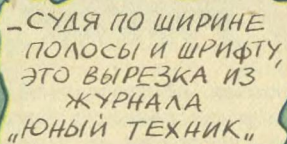 – СУДЯ ПО ШИРИНЕ
ПОЛОСЫ И ШРИФТУ,
ЭТО ВЫРЕЗКА ИЗ
ЖУРНАЛА
„ЮНЫЙ ТЕХНИК„